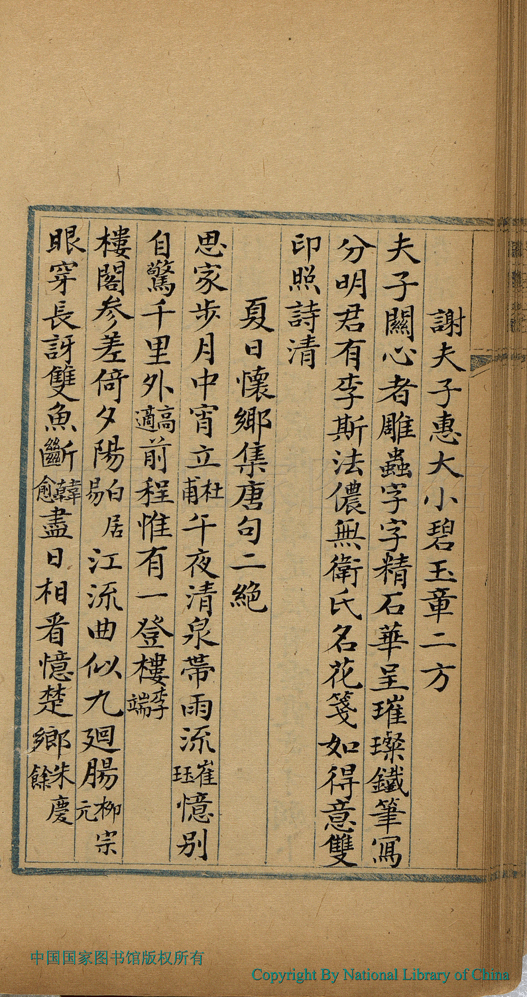 謝夫子惠大小碧玉章二方
夫子關心者雕蟲字字精石華呈璀璨鐵筆寫
分明君有李斯法儂無衛氏名花箋如得意雙
印照詩清
夏日懷鄉集唐句二絕
思家步月中宵立杜甫午夜清泉帶雨流崔珏憶別
自驚千里外高適前程惟有一登樓李端
樓閣參差倚夕陽白居易江流曲似九廻腸柳宗元
眼穿長訝雙魚斷韓愈盡日相看憶楚鄉朱慶餘
中国国家图书馆版权所有
Copyright By National Library of China